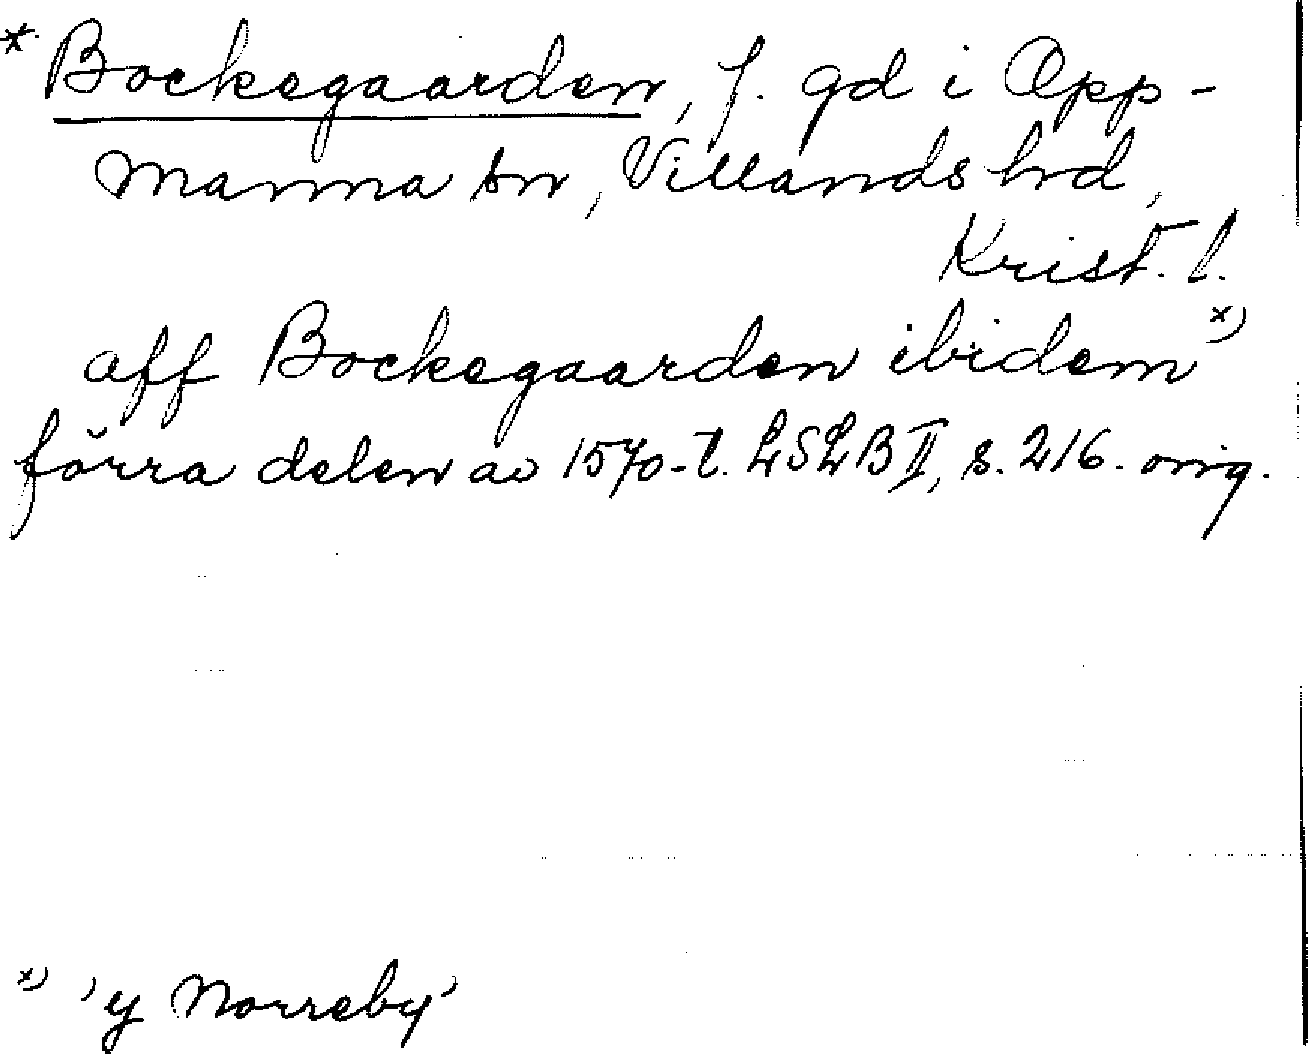 * Bockegaarden, f. gd i Opp-
manna sn, Villands hrd,
Krist. l.
aff Bockegaarden ibidem x)
förra delen av 1570-t. LSLB II, s. 216. orig.
x) 'y Norreby'